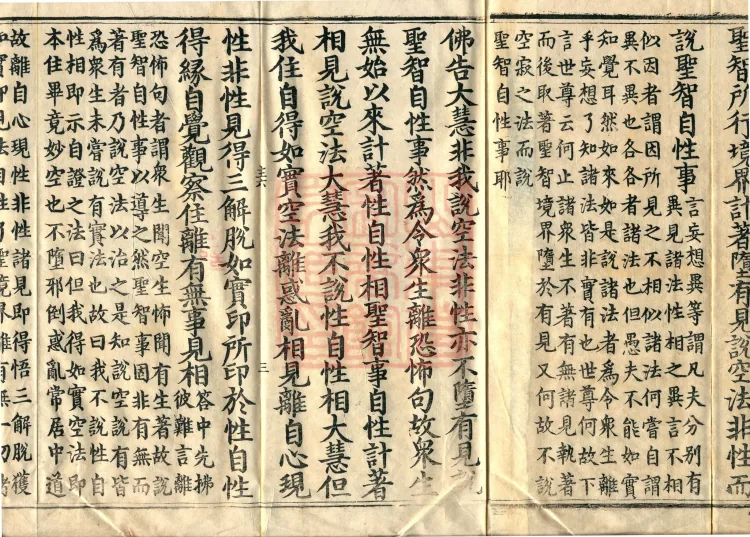 聖智所行境界計著墮有見說空法非性而
說聖智自性事
言妄想異等謂凡夫分別有
異見諸法性相之異言不相
似因者謂因所見之不相似諸法何嘗自謂
異不異也各各者諸法也但愚夫不能如實
知覺耳然如來如是說諸法者為令衆生離
乎妄想了知諸法皆非實有也世尊何故下
言世尊云何止諸衆生不著有無諸見執著
而後取著聖智境界墮於有見又何故不說
空寂之法而說
聖智自性事耶
佛告大慧非我說空法非性亦不墮有見說
聖智自性事然爲令衆生離恐怖句故衆生
無始以來計著性自性相聖智事自性計著
相見說空法大慧我不說性自性相大慧但
我住自得如實空法離惑亂相見離自心現
性非性見得三解脫如實印所印於性自性
得緣自覺觀察住離有無事見相
答中先拂
彼難言離
恐怖句者謂衆生聞空生怖聞有生著故說
聖智自性事以導之然聖智事因非有無而
著有者乃說空法以治之是知說空說有皆
爲衆生未嘗說有實法也故曰我不說性自
性相即示自證之法曰但我得如實空法即
本住畢竟妙空也不墮邪倒惑亂常居中道
故離自心現性非性諸見即得悟三解脫獲
如實印見法自性了聖境界離有無一切